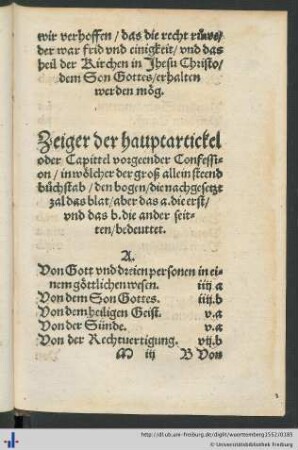 wir verhoffen / das die recht rüwe /
der war frid vnd einigkeit / vnd das
heil der Kirchen in Jhesu Christo /
dem Son Gottes / erhalten
werden mög.
Zeiger der hauptartickel
oder Capittel vorgeender Confessi-
on / in wölcher der groß allein steend
büchstab / den bogen / die nachgesetzt
zal das blat / aber das a. die erst /
vnd das b. die ander seit-
ten / bedeuttet.
A.
Von Gott vnd dreien personen in ei-
nem göttlichen wesen. iiij a
Von dem Son Gottes. iiij.b
Von dem heiligen Geist. v.a
Von der Sünde. v.a
Von der Rechtuertigung. vij.b
M iij B Von
http://dl.ub.uni-freiburg.de/diglit/wuerttemberg1552/0185
© Universitätsbibliothek Freiburg